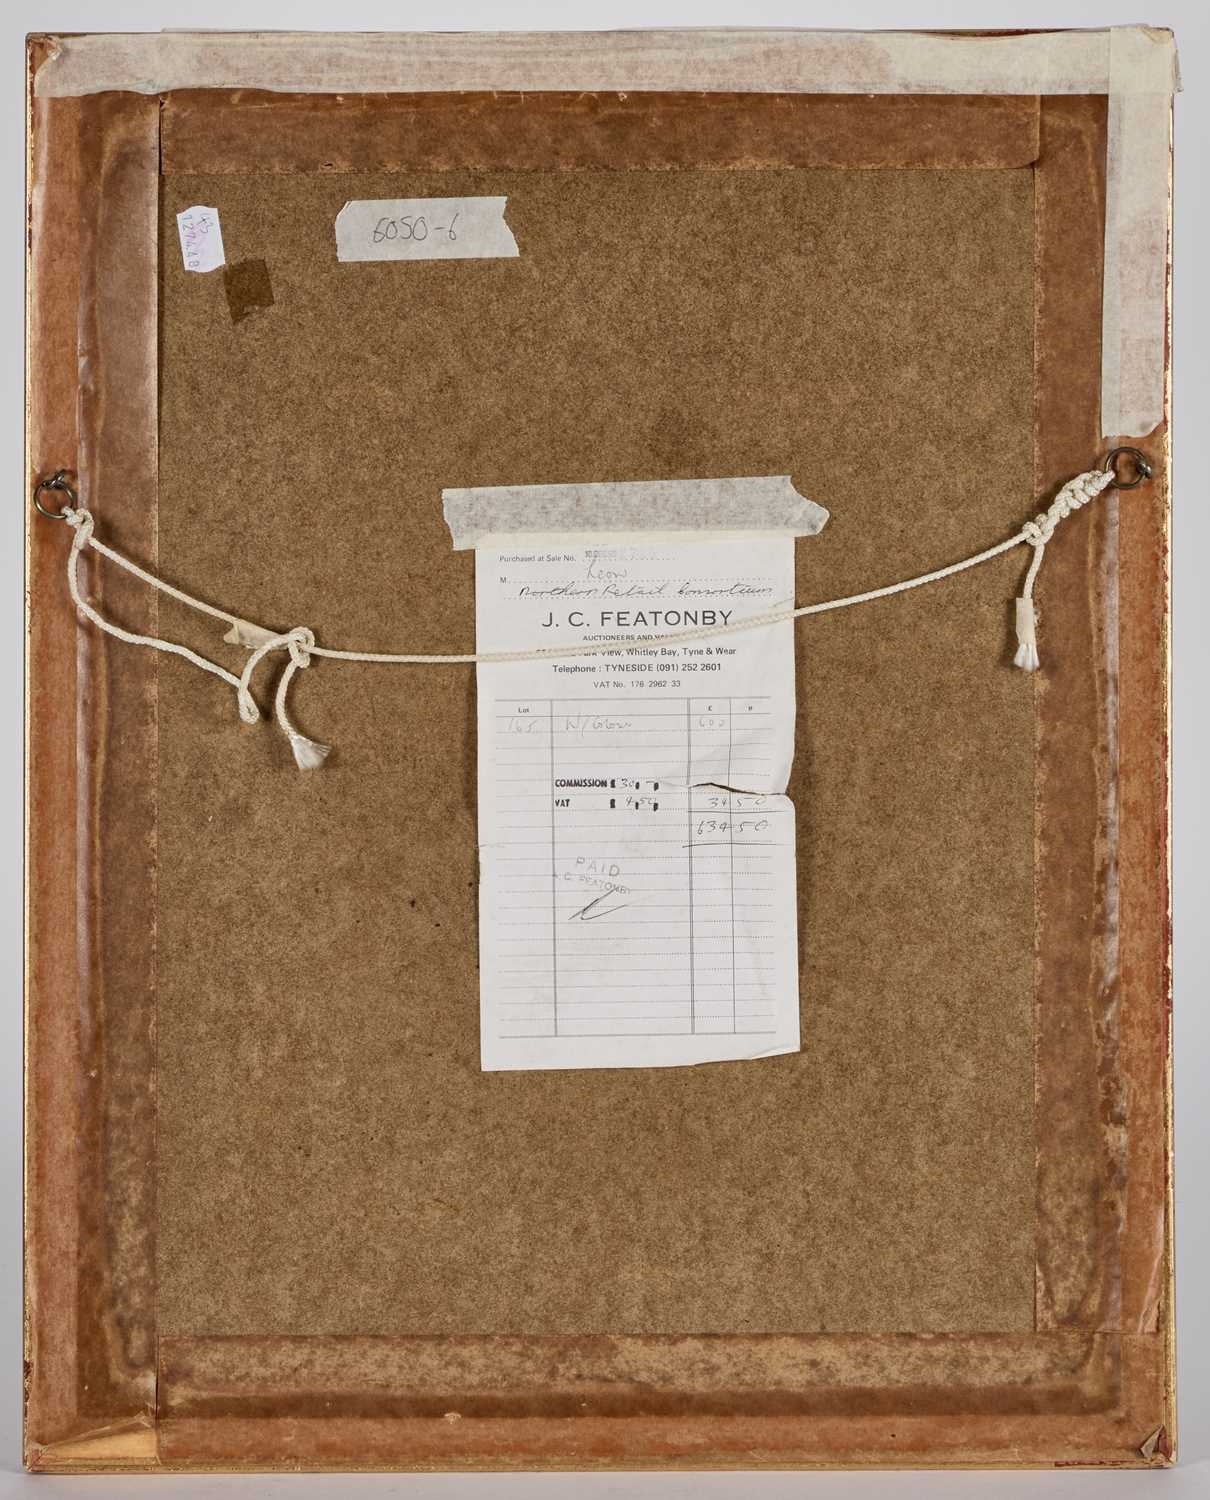 127448
6050-6
Purchased at Sale No.
M Leon
Northern Retail Consortium
J. C. FEATONBY
AUCTIONEERS AND
View, Whitley Bay, Tyne & Wear
Telephone : TYNESIDE (091) 252 2601
VAT No. 176 2962 33
Lot £ P
165 W/Colour 600
COMMISSION £ 30 -
VAT £ 4.50 34 50
634 50
PAID
J. C. FEATONBY